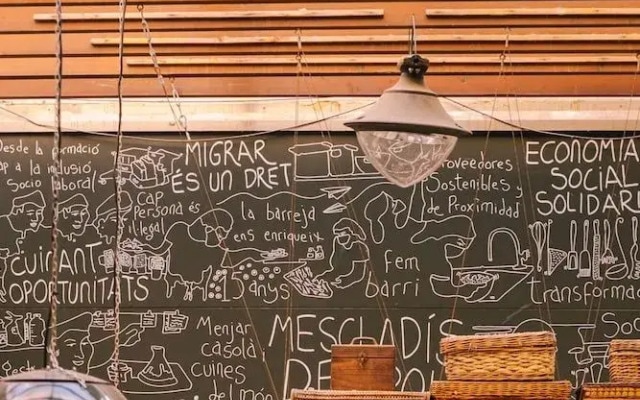 Desde la formació
cap a la inclusió
Socio
laboral
MIGRAR
ÉS UN DRET
CAP
Persona és
il·legal
la barreja
ens enriqueix
Proveedores
Sostenibles y
de Proximidad
ECONOMIA
SOCIAL
SOLIDARI
CUINANT
OPORTUNITATS
15 anys
fem
barri
transformad
Menjar
casolà,
cuines
del món
MESCLADÍS
DE
So